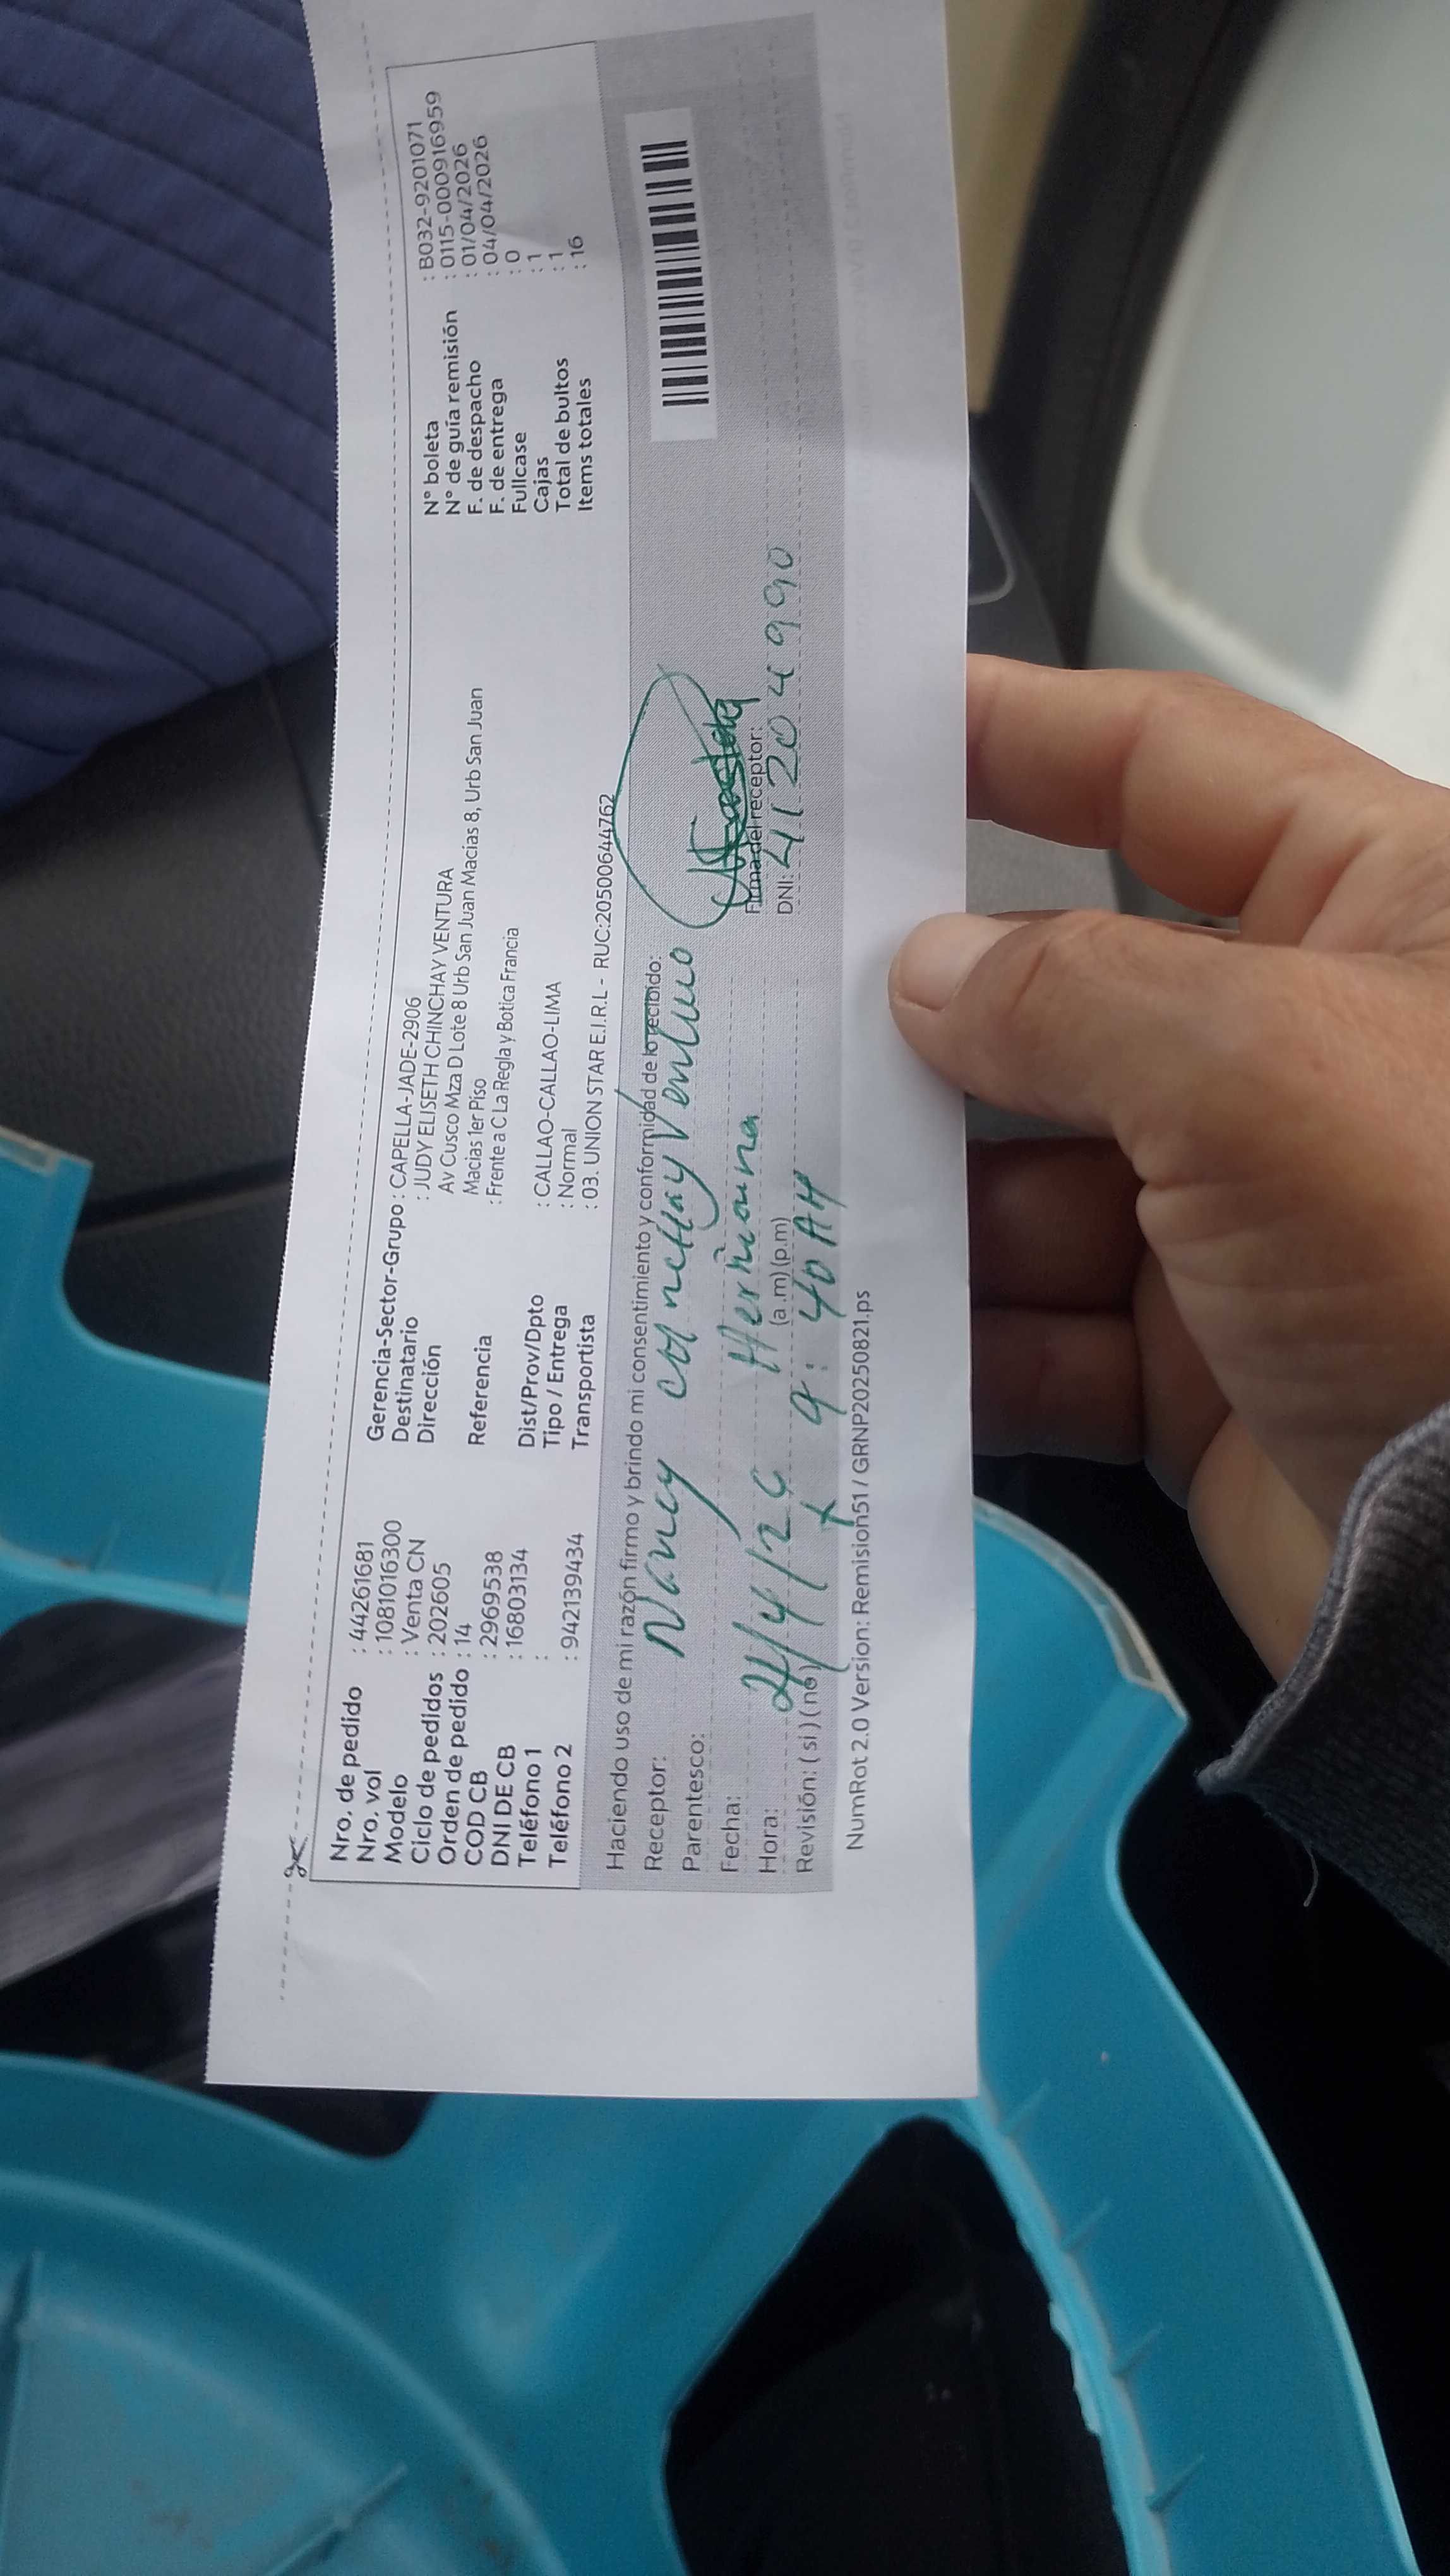 Nro. de pedido : 44261681
Nro. vol : 1081016300
Modelo : Venta CN
Ciclo de pedidos : 202605
Orden de pedido : 14
COD CB : 2969538
DNI DE CB : 16803134
Teléfono 1 :
Teléfono 2 : 942139434
Gerencia-Sector-Grupo : CAPELLA-JADE-2906
Destinatario : JUDY ELISETH CHINCHAY VENTURA
Dirección Av Cusco Mza D Lote 8 Urb San Juan Macias 8, Urb San Juan
Macias 1er Piso
Referencia : Frente a C La Regla y Botica Francia
Dist/Prov/Dpto : CALLAO-CALLAO-LIMA
Tipo / Entrega : Normal
Transportista : 03. UNION STAR E.I.R.L - RUC:20500644762
N° boleta : B032-9201071
N° de guía remisión : 0115-000916959
F. de despacho : 01/04/2026
F. de entrega : 04/04/2026
Fullcase : 0
Cajas : 1
Total de bultos : 1
Items totales : 16
Haciendo uso de mi razón firmo y brindo mi consentimiento y conformidad de lo recibido:
Receptor: Nancy Ventura
Parentesco: Hermana
Fecha:
Hora: 9:40 AM (a.m) (p.m)
Revisión: (si) (no)
Firma del receptor:
DNI: 41204990
NumRot 2.0 Version: Remision51 / GRNP20250821.ps